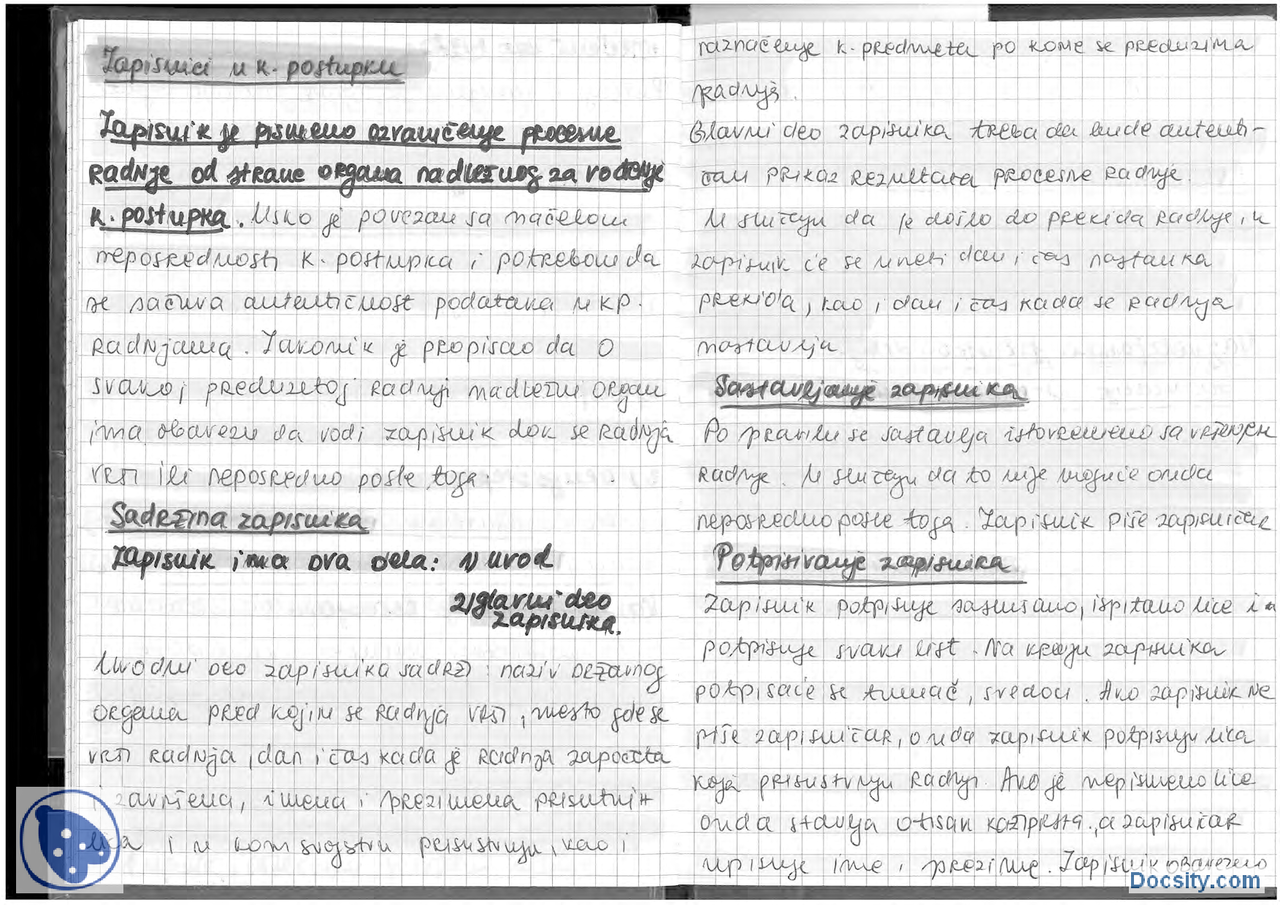 Zapisnici u k. postupku
Zapisnik je pismeno ozvaničenje procesne
radnje od strane organa nadležnog za vođenje
k. postupka. Usko je povezan sa načelom
neposrednosti k. postupka i potrebom da
se sačuva autentičnost podataka u kp.
radnjama. Zakonik je propisao da o
svakoj preduzetoj radnji nadležni organ
ima obavezu da vodi zapisnik dok se radnja
vrši ili neposredno posle toga.
Sadržina zapisnika
Zapisnik ima dva dela: 1) uvod
2) glavni deo
zapisnika.
Uvodni deo zapisnika sadrži: naziv državnog
organa pred kojim se radnja vrši, mesto gde se
vrši radnja, dan i čas kada je radnja započeta
i završena, imena i prezimena prisutnih
lica i u kom svojstvu prisustvuju, kao i
naznačenje k. predmeta po kome se preduzima
radnja.
Glavni deo zapisnika treba da bude autenti-
čan prikaz rezultata procesne radnje.
U slučaju da je došlo do prekida radnje, u
zapisnik će se uneti dan i čas nastanka
prekida, kao i dan i čas kada se radnja
nastavlja
Sastavljanje zapisnika
Po pravilu se sastavlja istovremeno sa vršenjem
radnje. U slučaju da to nije moguće onda
neposredno posle toga. Zapisnik piše zapisničar
Potpisivanje zapisnika
Zapisnik potpisuje saslušano, ispitano lice i
potpisuje svaki list. Na kraju zapisnika
potpisaće se tumač, svedoci. Ako zapisnik ne
piše zapisničar, onda zapisnik potpisuju lica
koja prisustvuju radnji. Ako je nepismeno lice
onda stavlja otisak kažiprsta, a zapisničar
upisuje ime i prezime. Zapisnik obavezno
Docsity.com